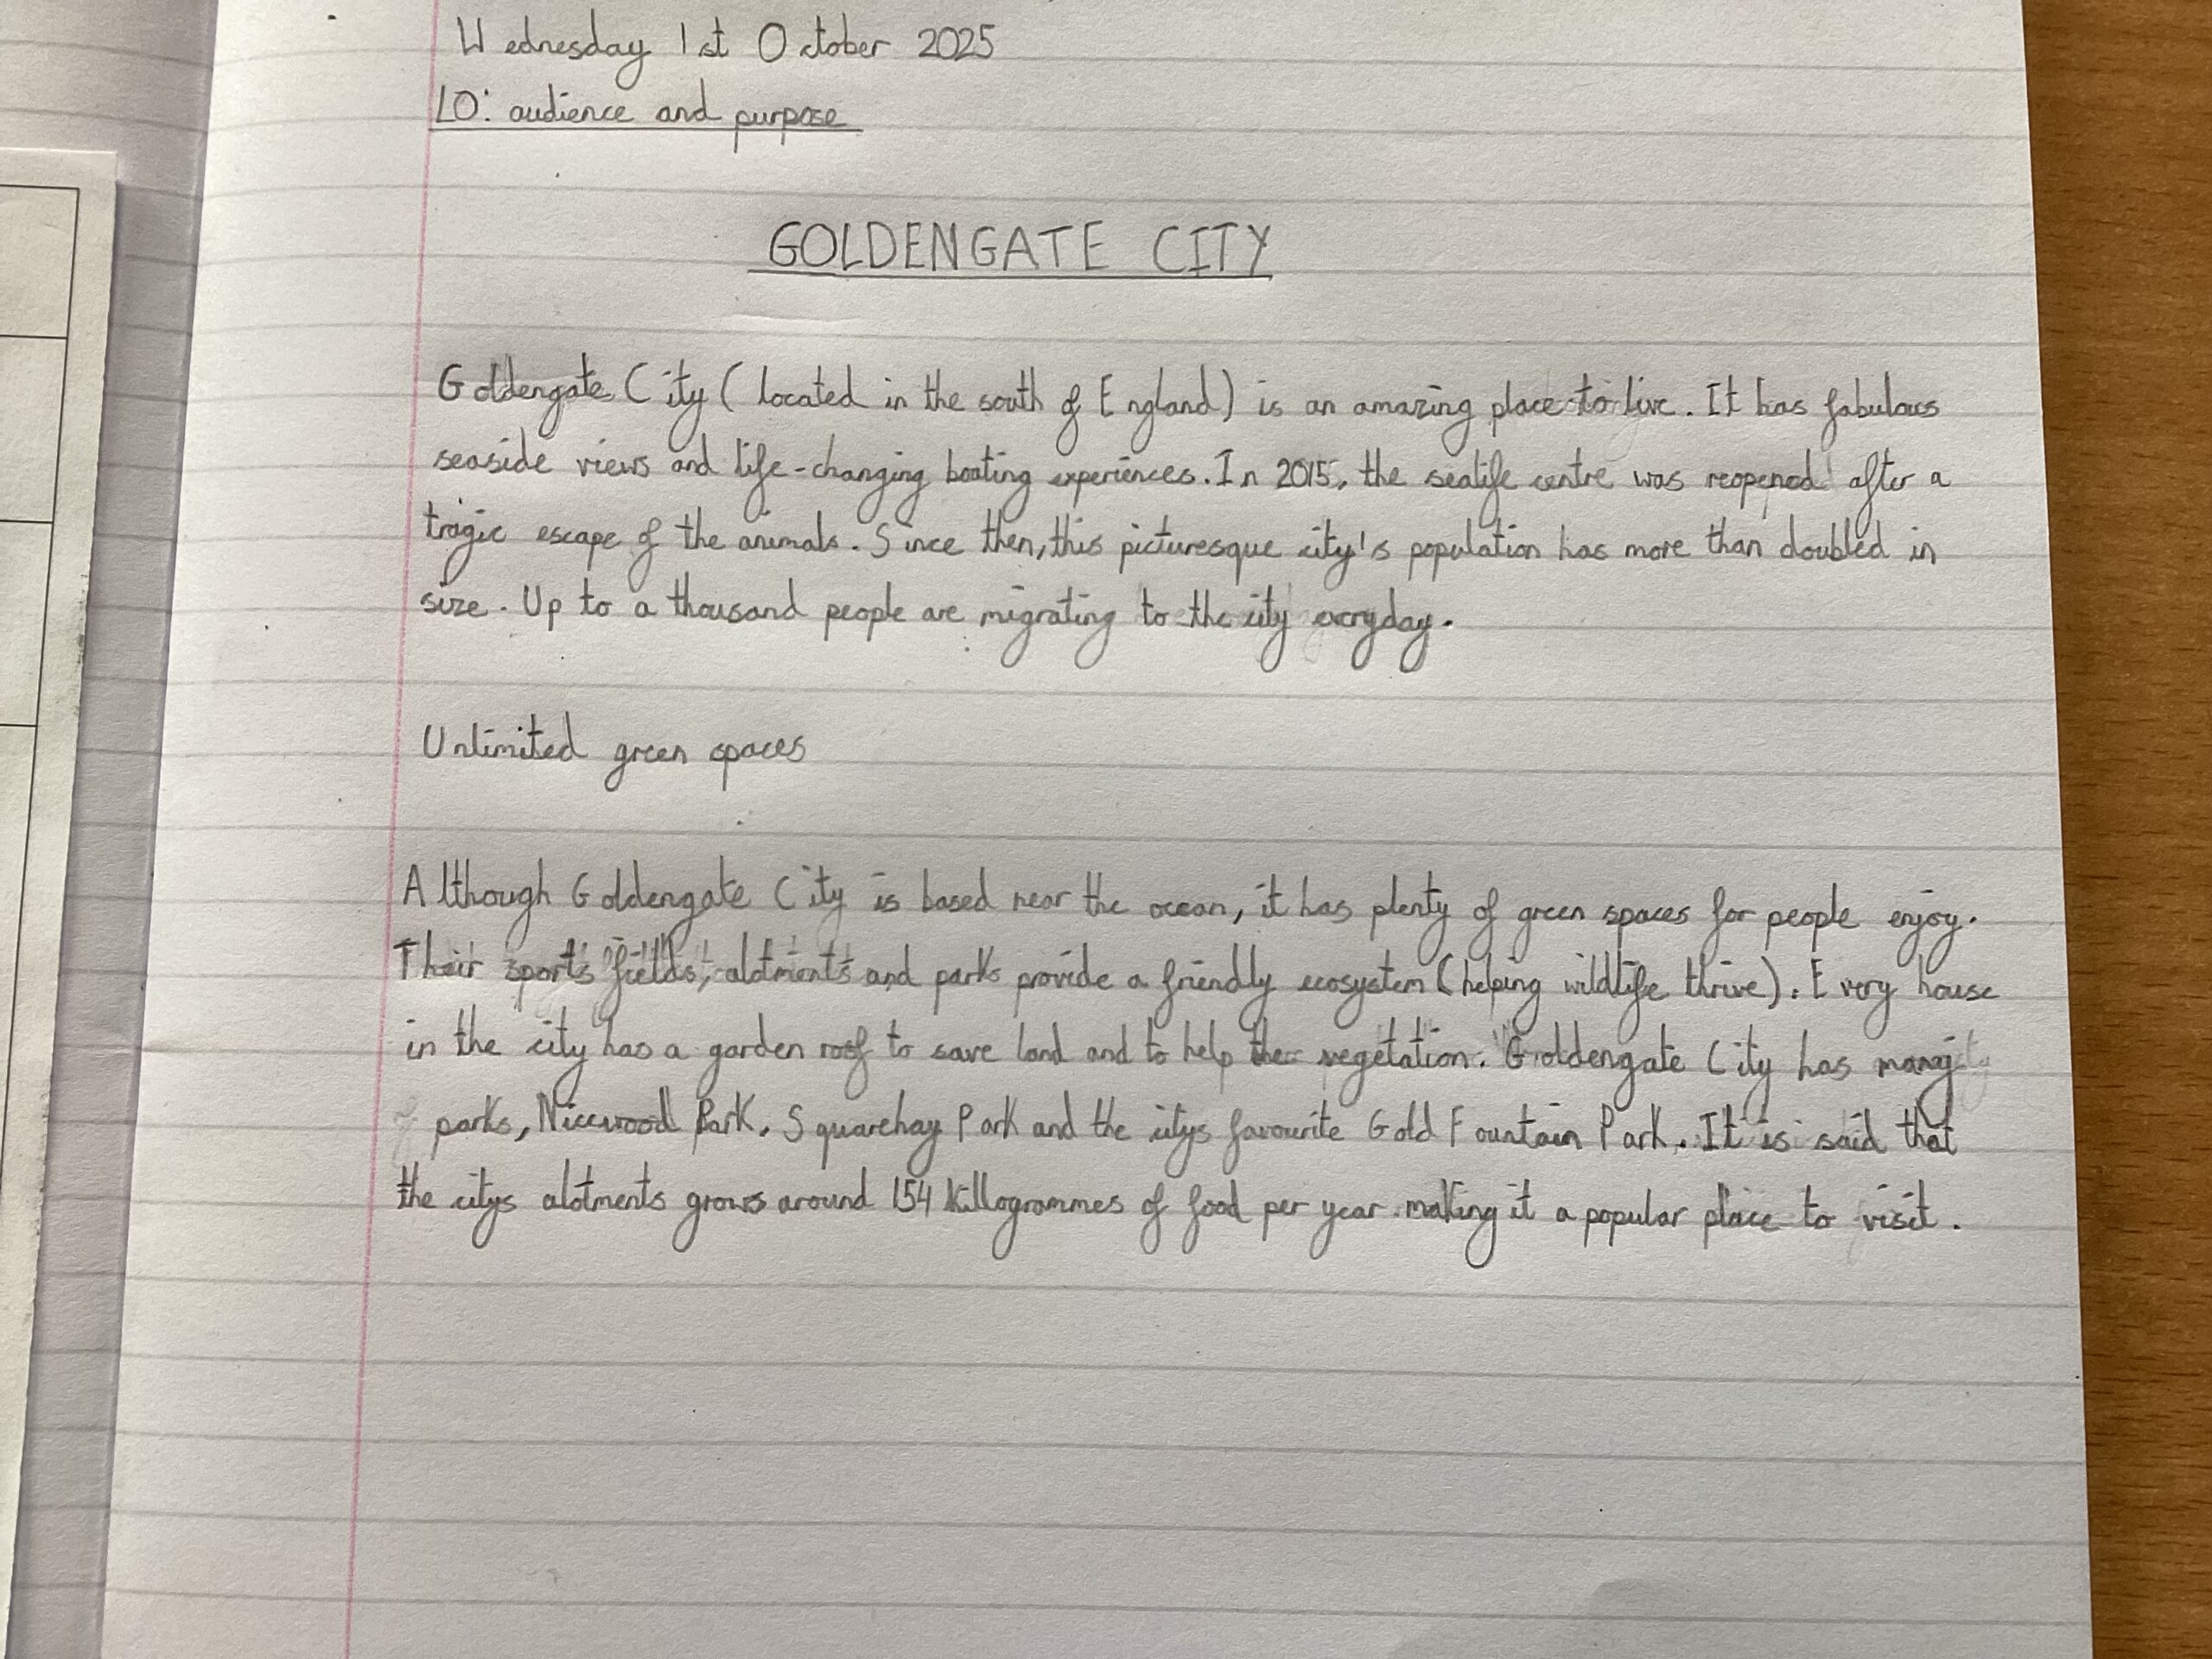 Wednesday 1st October 2025
LO: audience and purpose
GOLDENGATE CITY
Goldengate City (located in the south of England) is an amazing place to live. It has fabulous
seaside views and life-changing boating experiences. In 2015, the sealife centre was reopened after a
tragic escape of the animals. Since then, this picturesque city's population has more than doubled in
size. Up to a thousand people are migrating to the city everyday.
Unlimited green spaces
Although Goldengate City is based near the ocean, it has plenty of green spaces for people enjoy.
Their sports fields, alotments and parks provide a friendly ecosystem (helping wildlife thrive). Every house
in the city has a garden roof to save land and to help the vegetation. Goldengate City has many
parks, Nicewood Park, Squarehay Park and the citys favourite Gold Fountain Park. It is said that
the citys alotments grows around 154 killogrammes of food per year making it a popular place to visit.